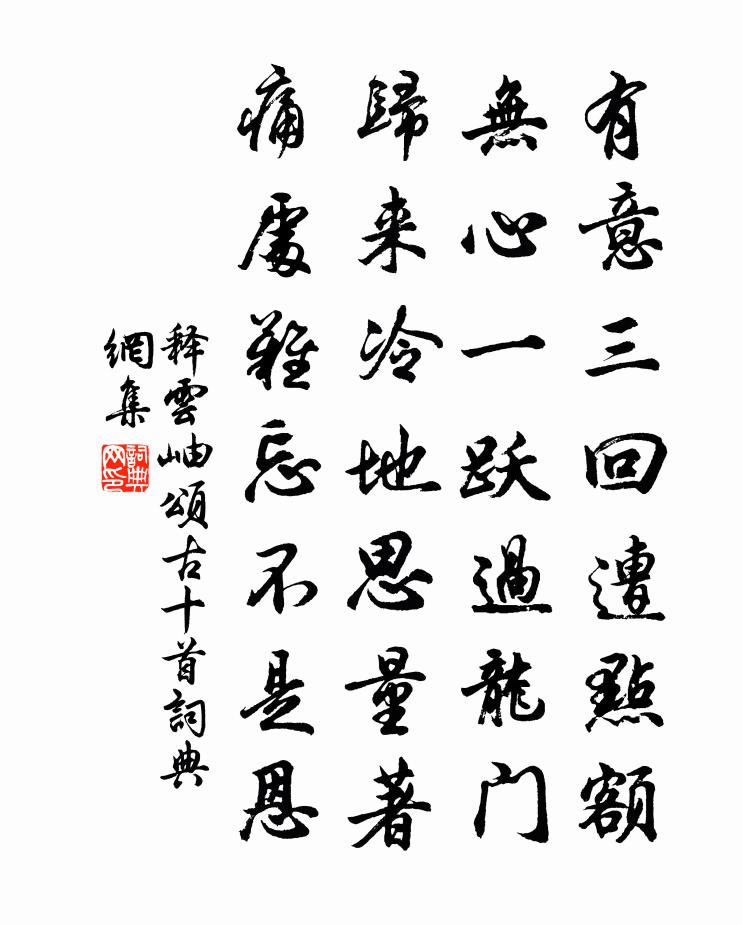 有意三回遭點額
無心一跃過龍门
歸来冷地思量著
痛處難忘不是恩
释雲岫頌古十首詞典
網集
詞典
网印